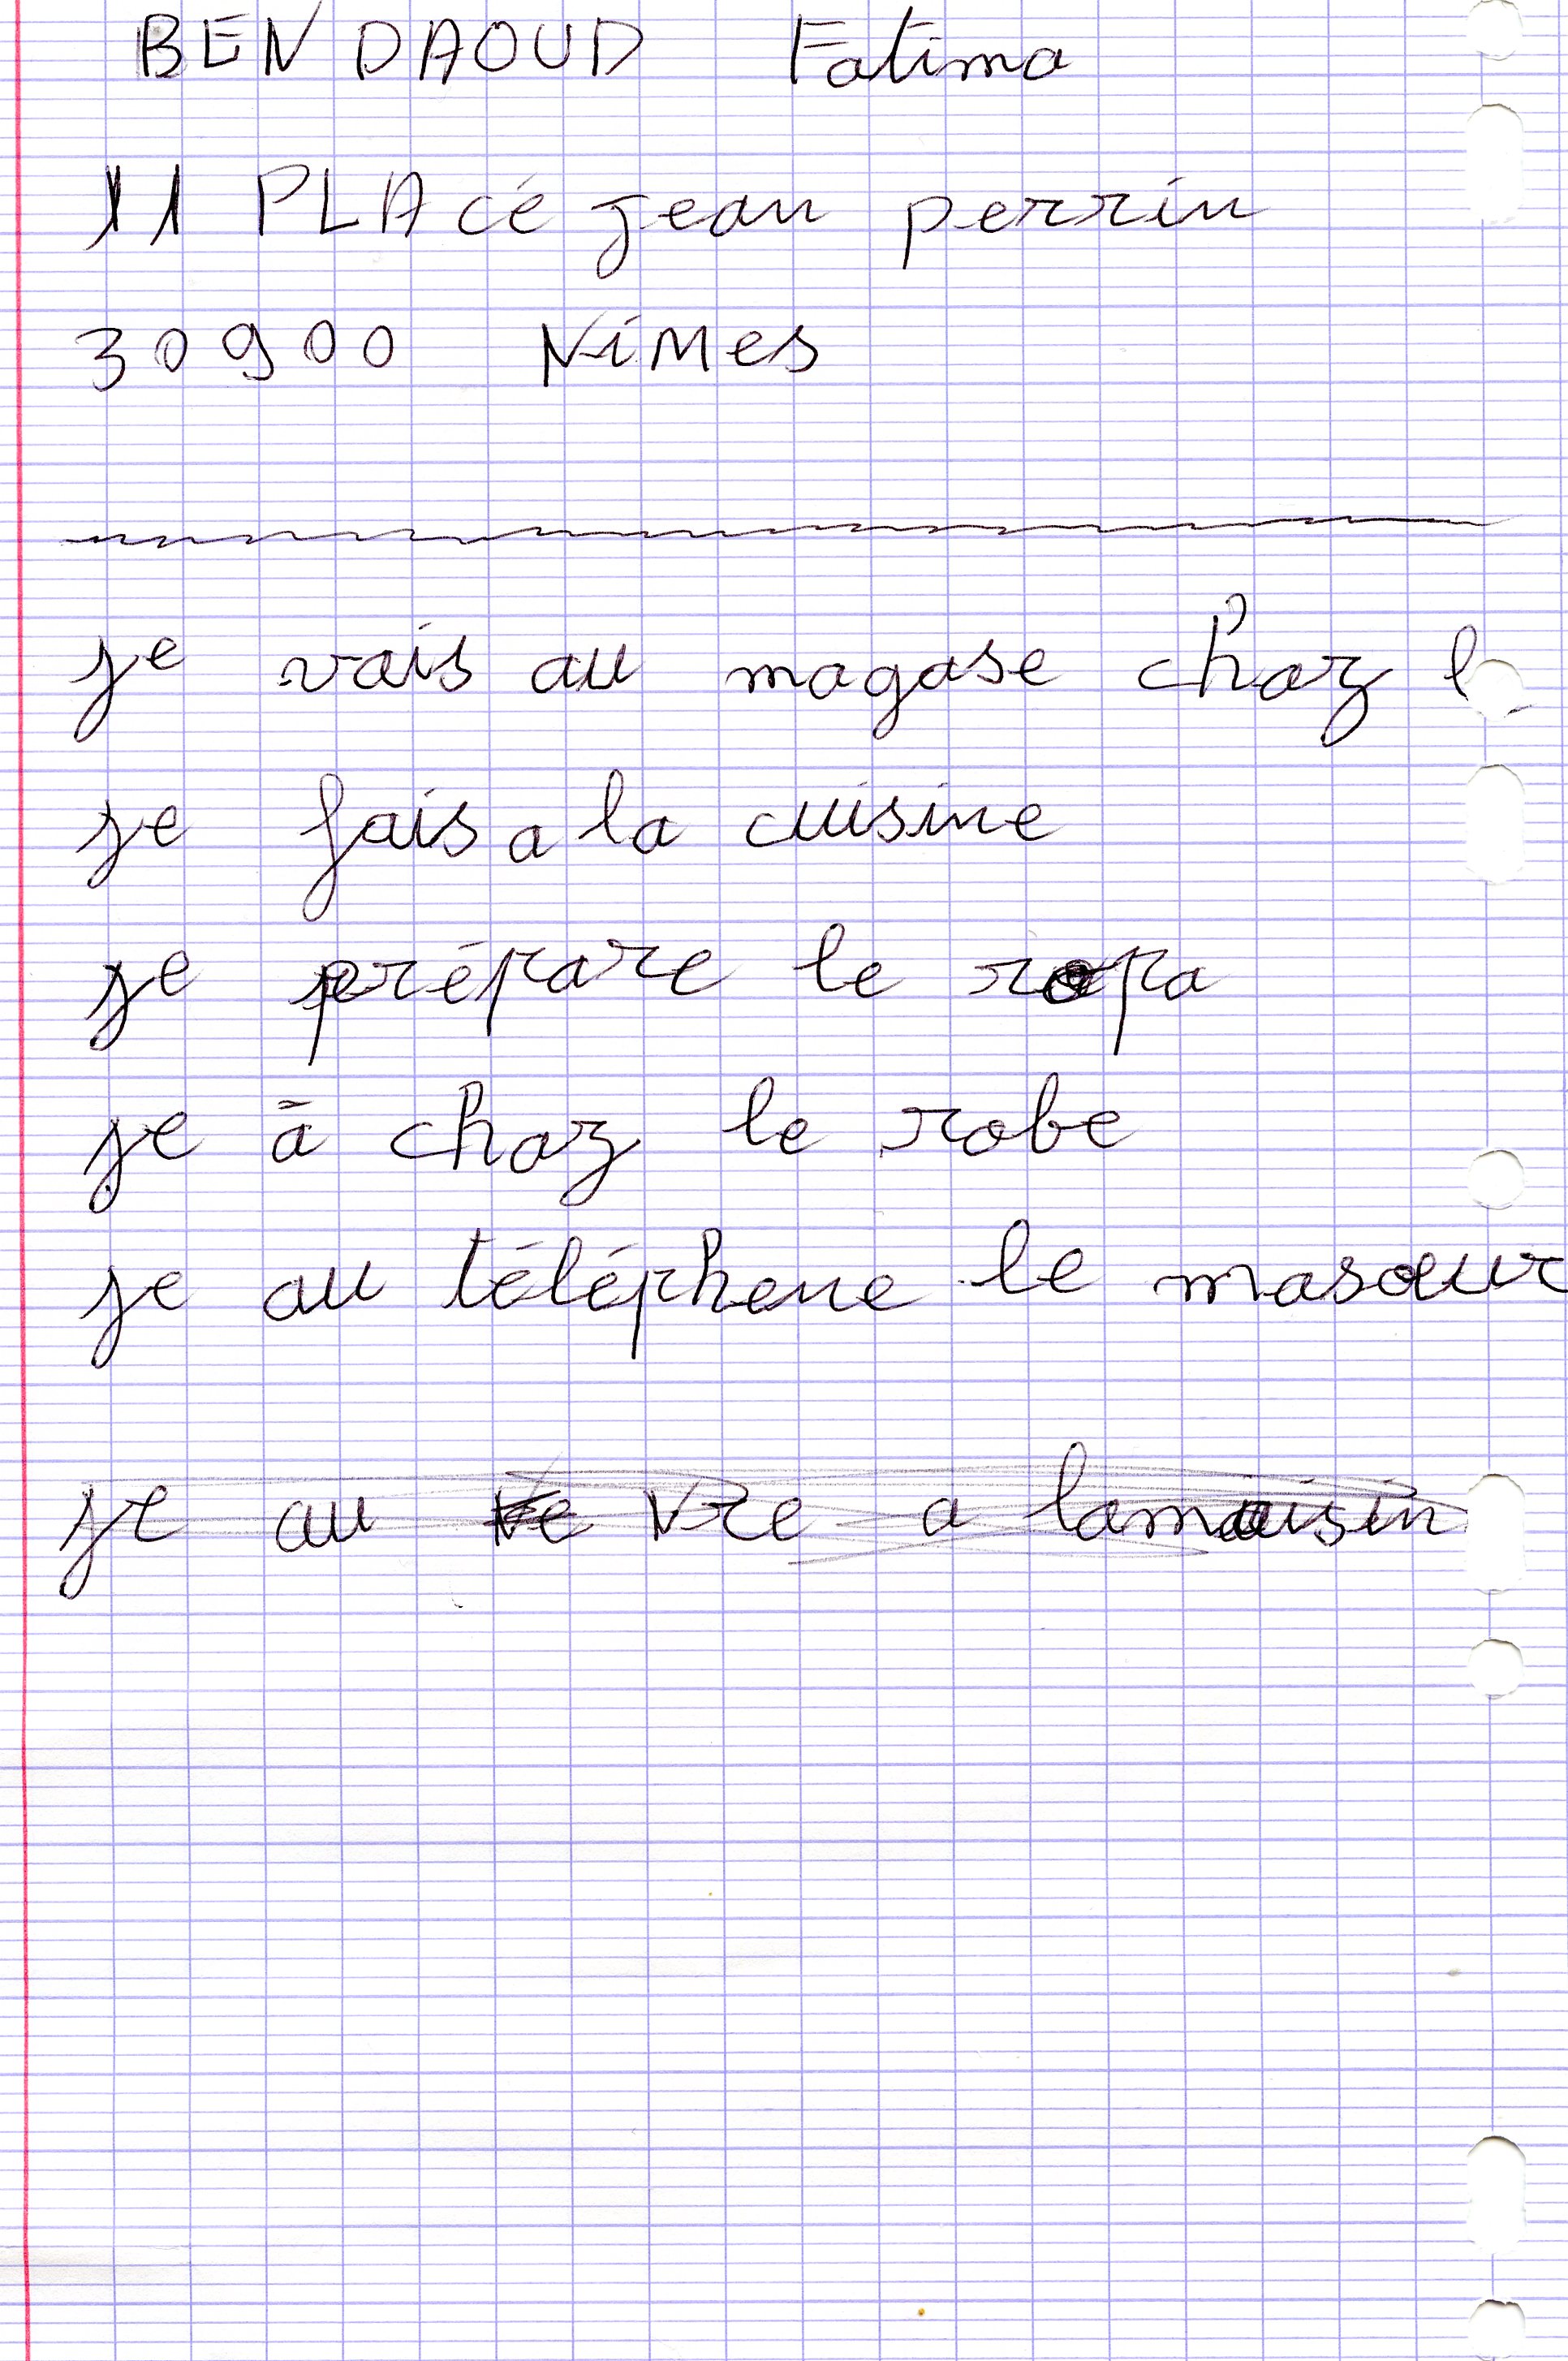 BEN DAOUD Fatima
11 PLAcé jean perrin
30900 NiMes
je vais au magase chaz
je fais a la cuisine
je prépare le ropa
je à chaz le robe
je au téléphene le masœur
je au ve vre a lamaisin